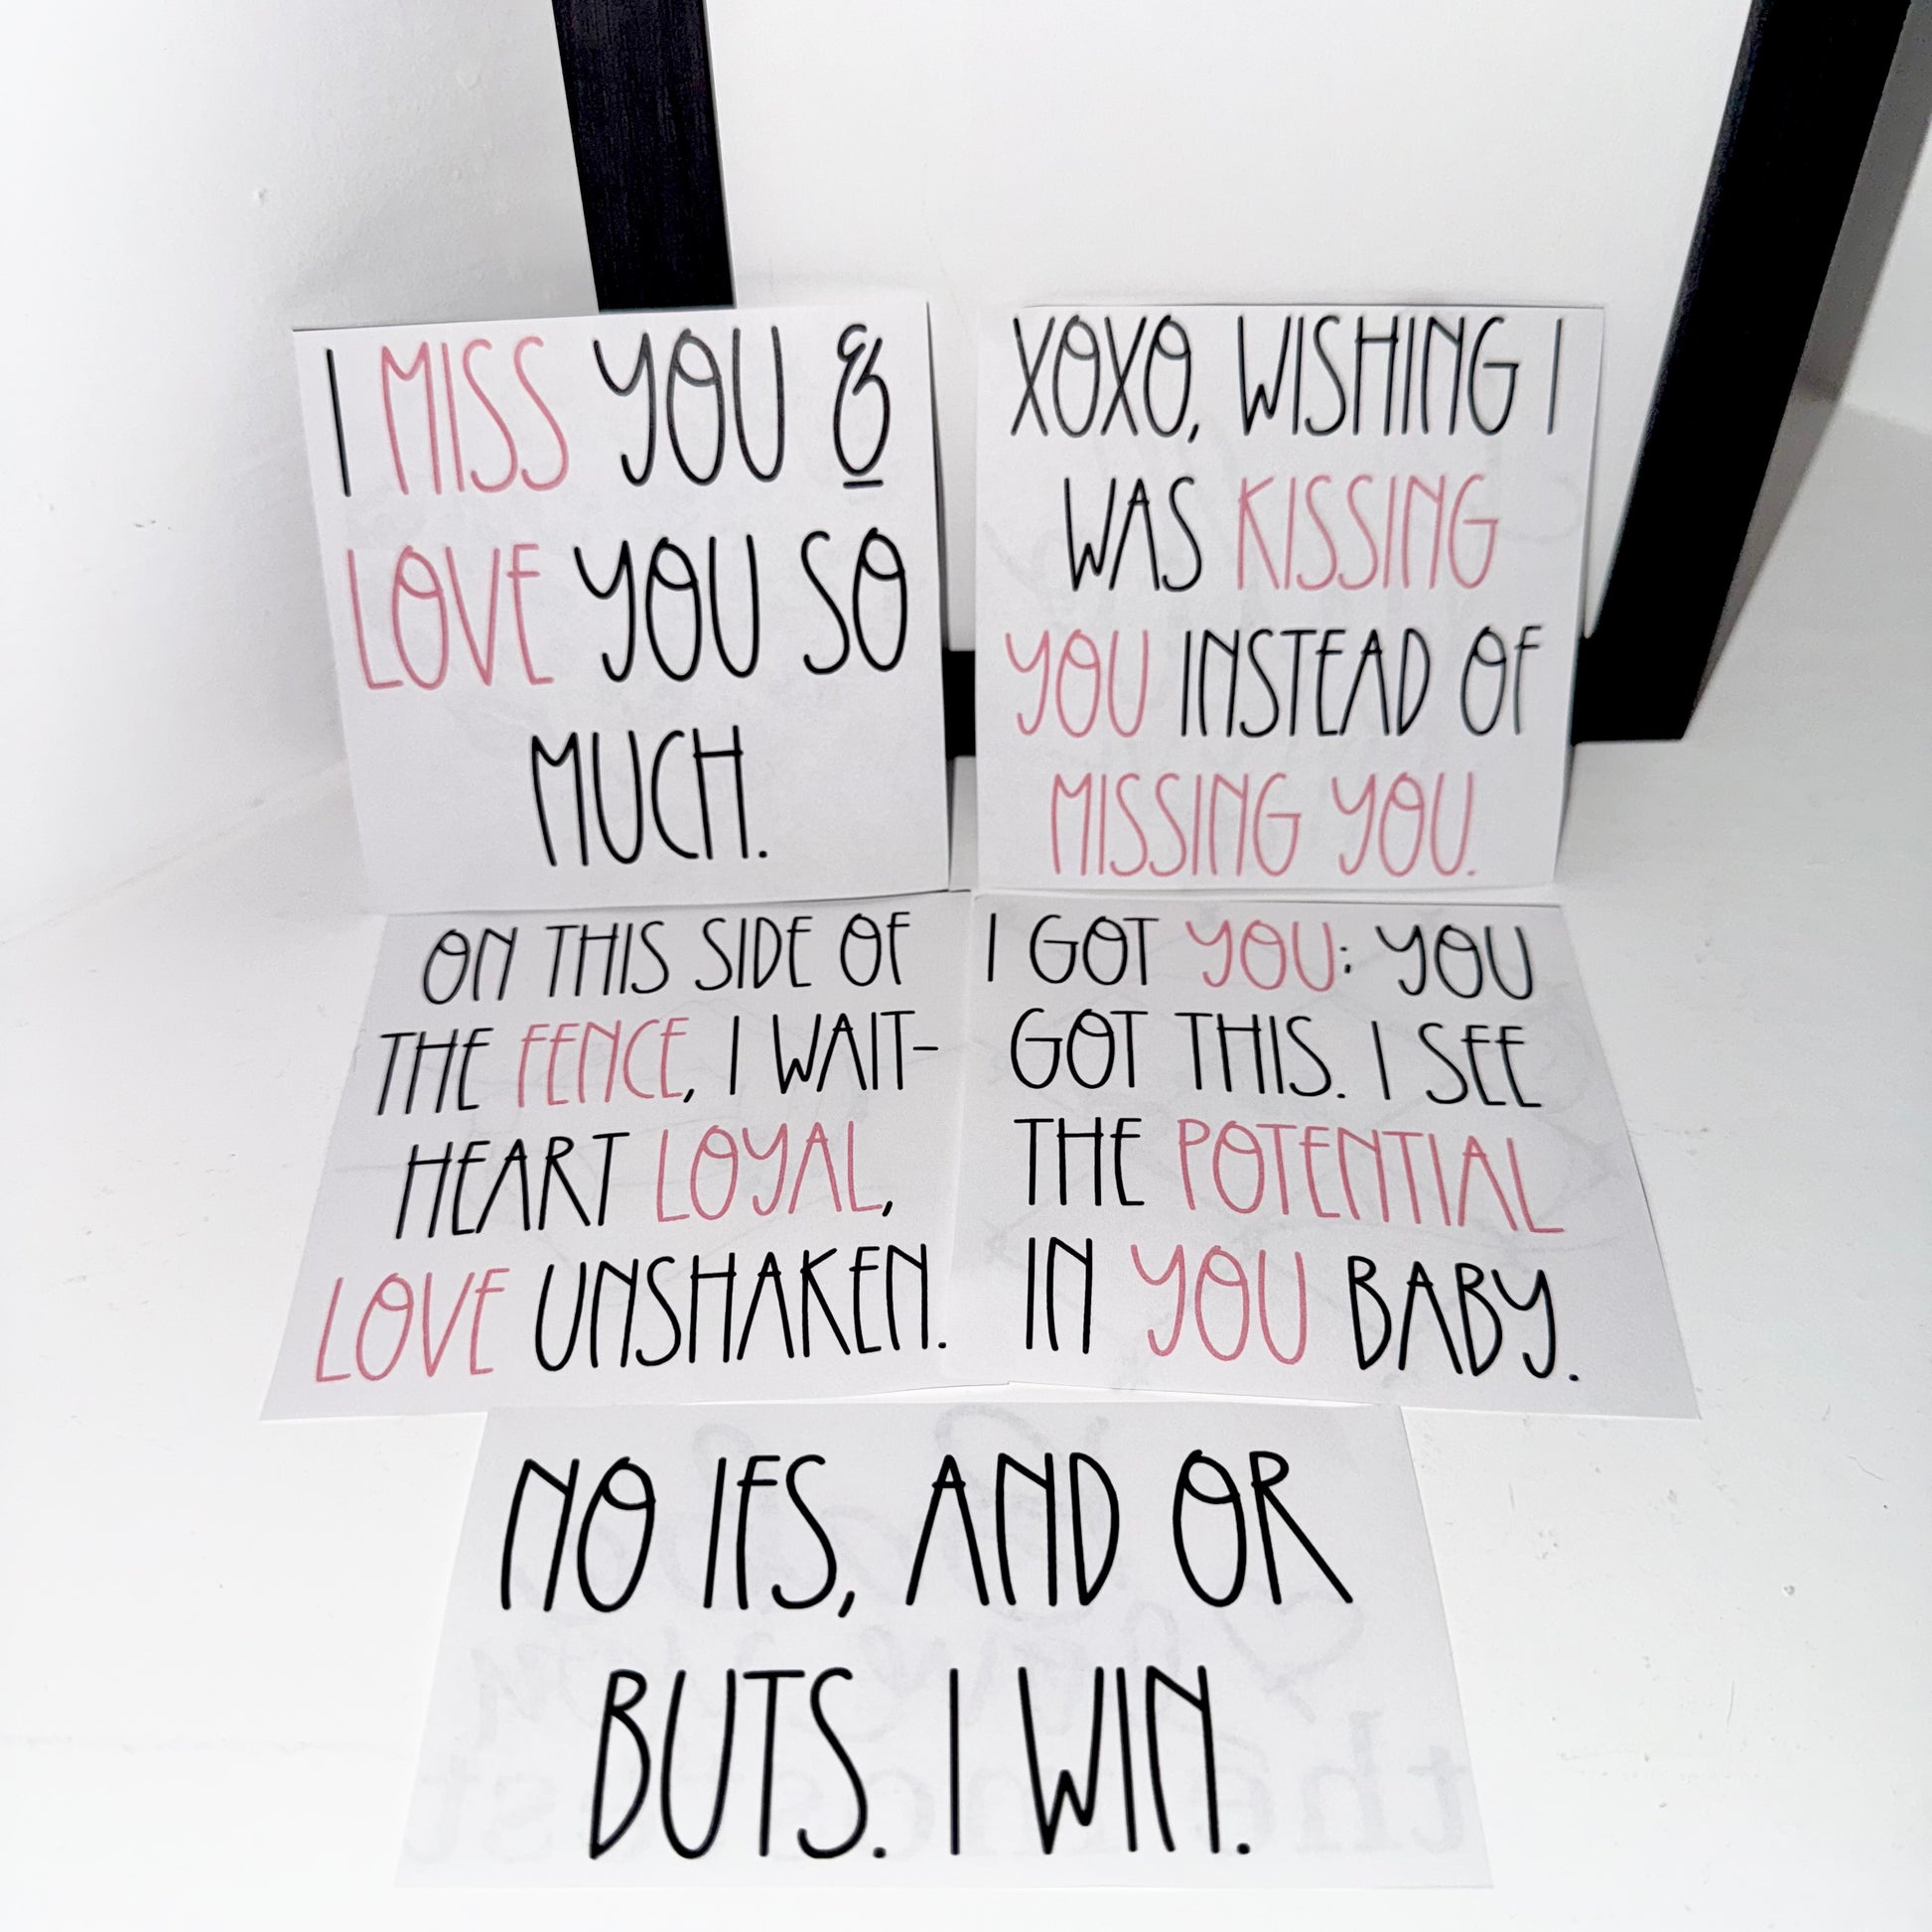 I MISS YOU &
LOVE YOU SO
MUCH.
XOXO, WISHING I
WAS KISSING
YOU INSTEAD OF
MISSING YOU.
ON THIS SIDE OF
THE FENCE, I WAIT-
HEART LOYAL,
LOVE UNSHAKEN.
I GOT YOU: YOU
GOT THIS. I SEE
THE POTENTIAL
IN YOU BABY.
NO IFS, AND OR
BUTS. I WIN.